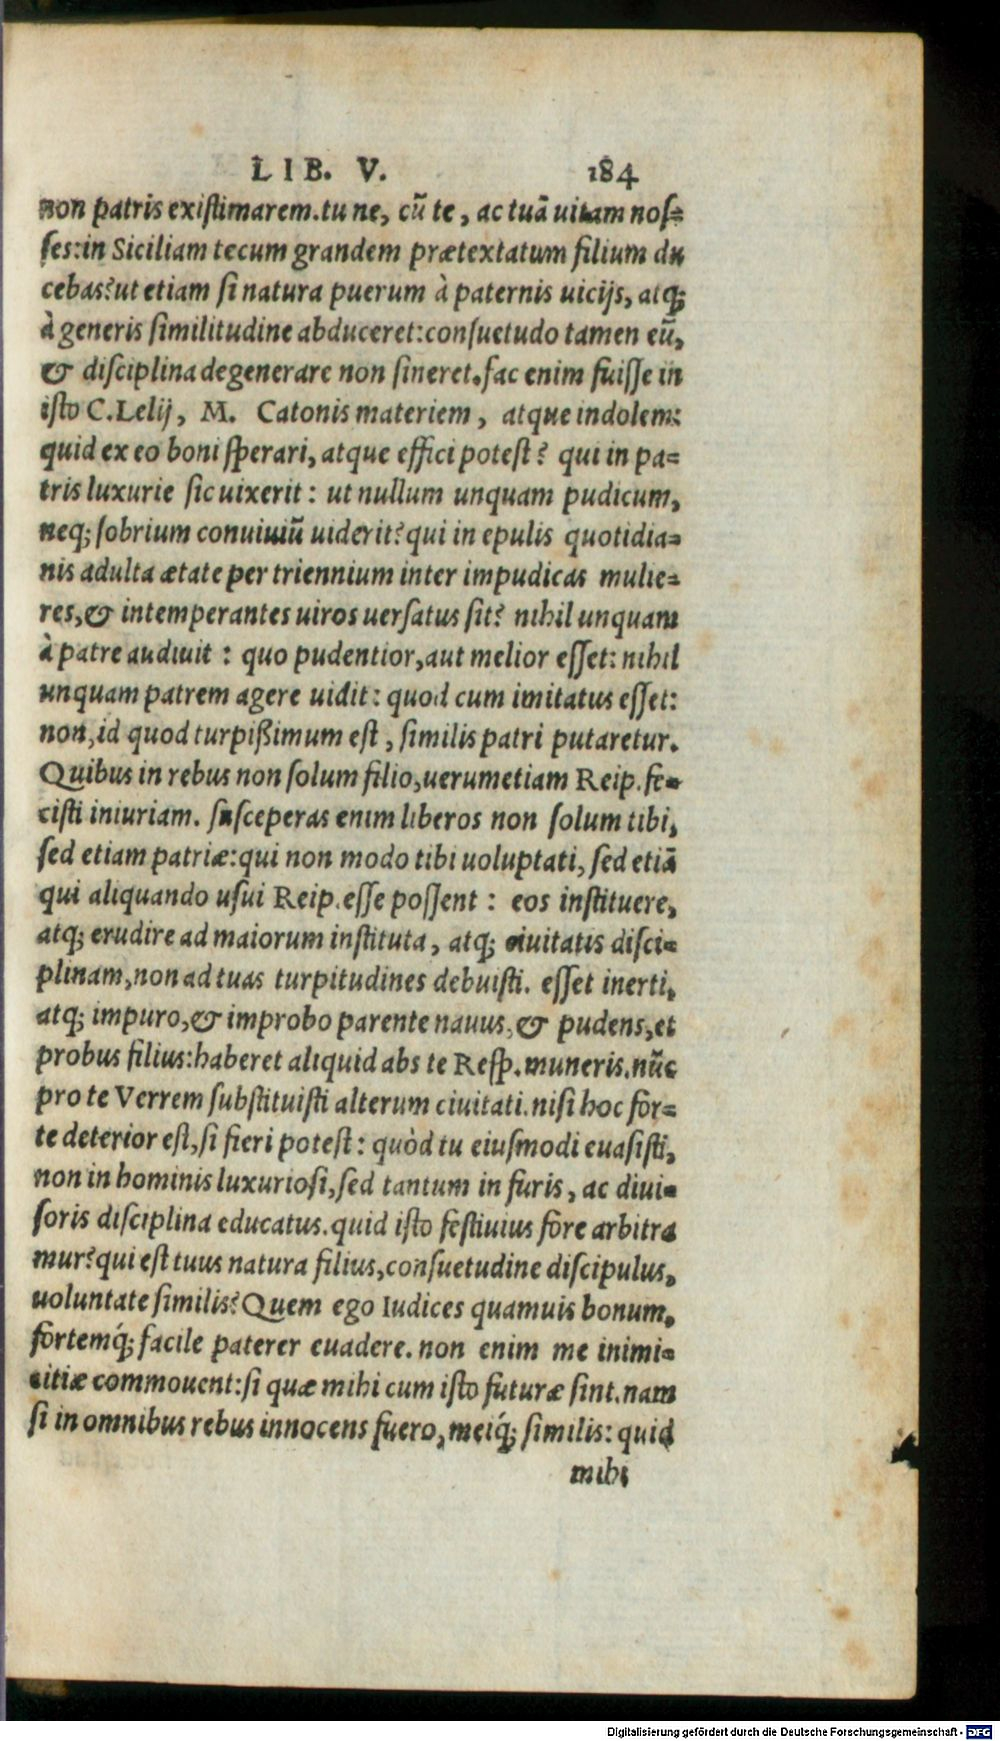 LIB. V. 184
non patris existimarem. tu ne, cū te, ac tuā uitam nos=
ses: in Siciliam tecum grandem prætextatum filium du
cebas? ut etiam si natura puerum à paternis uicijs, atq;
à generis similitudine abduceret: consuetudo tamen eū,
& disciplina degenerare non sineret. fac enim fuisse in
isto C. Lelij, M. Catonis materiem, atque indolem:
quid ex eo boni sperari, atque effici potest? qui in pa=
tris luxurie sic uixerit: ut nullum unquam pudicum,
neq; sobrium conuiuiū uiderit? qui in epulis quotidia=
nis adulta ætate per triennium inter impudicas mulie=
res, & intemperantes uiros uersatus sit? nihil unquam
à patre audiuit: quo pudentior, aut melior esset: nihil
unquam patrem agere uidit: quod cum imitatus esset:
non, id quod turpißimum est, similis patri putaretur.
Quibus in rebus non solum filio, uerumetiam Reip. fe=
cisti iniuriam. susceperas enim liberos non solum tibi,
sed etiam patriæ: qui non modo tibi uoluptati, sed etiā
qui aliquando usui Reip. esse possent: eos instituere,
atq; erudire ad maiorum instituta, atq; ciuitatis disci=
plinam, non ad tuas turpitudines debuisti. esset inerti,
atq; impuro, & improbo parente nauus, & pudens, et
probus filius: haberet aliquid abs te Resp. muneris. nūc
pro te Verrem substituisti alterum ciuitati. nisi hoc for=
te deterior est, si fieri potest: quòd tu eiusmodi euasisti,
non in hominis luxuriosi, sed tantum in furis, ac diui=
soris disciplina educatus. quid isto festiuius fore arbitra
mur? qui est tuus natura filius, consuetudine discipulus,
uoluntate similis? Quem ego Iudices quamuis bonum,
fortemq́; facile paterer euadere. non enim me inimi=
citiæ commouent: si quæ mihi cum isto futuræ sint. nam
si in omnibus rebus innocens fuero, meiq́; similis: quid
mihi
Digitalisierung gefördert durch die Deutsche Forschungsgemeinschaft - DFG